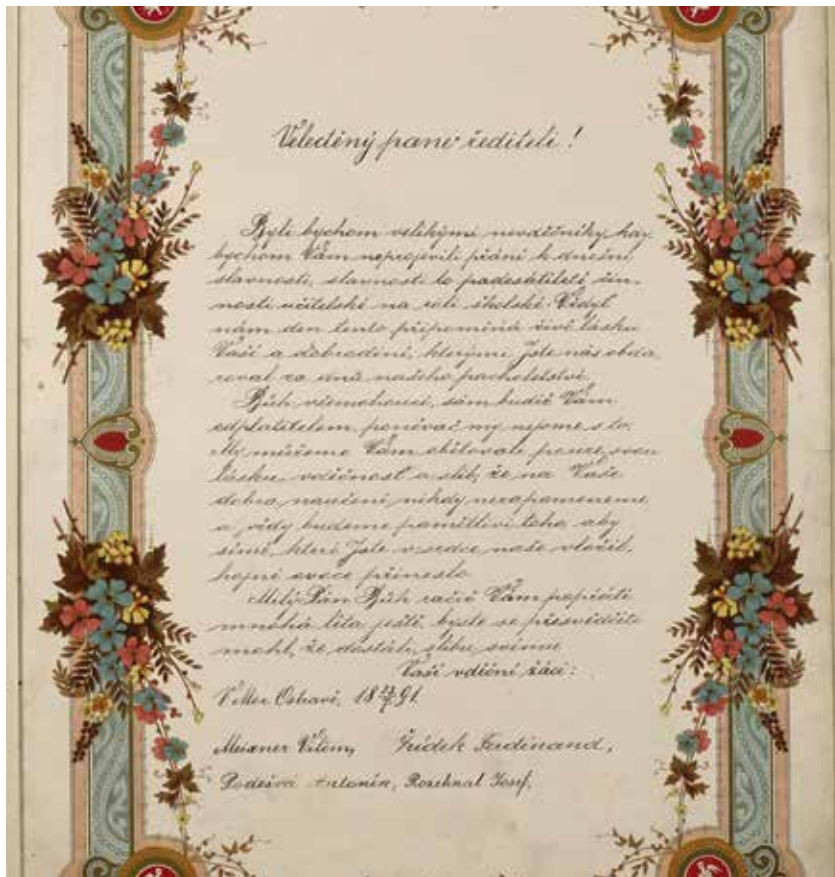 Velectěný pane řediteli!
Byli bychom velikými nevděčníky, kdy-
bychom Vám neprojevili přání k dnešní
slavnosti, slavnosti to padesátileté čin-
nosti učitelské na roli školské. Vždyť
nám den tento připomíná živě lásku
Vaši a dobrodiní, kterými Jste nás obda-
roval za dnů našeho pacholetství.
Bůh všemohoucí, sám budiž Vám
odplatitelem, poněvač my nejsme s to.
My můžeme Vám obětovati pouze svou
lásku, vděčnost a slib, že na Vaše
dobrá naučení nikdy nezapomeneme
a vždy budeme pamětlivi toho, aby
símě, které Jste v srdce naše vložil,
hojné ovoce přineslo.
Milý Pán Bůh račiž Vám popřáti
mnohá léta ještě, byste se přesvědčiti
mohl, že dostáli slibu svému
Vaši vděční žáci:
V Mor. Ostravě, 18 91.
Meixner Vilém, Ferdinand,
Poděšva Antonín, Rozehnal Josef.